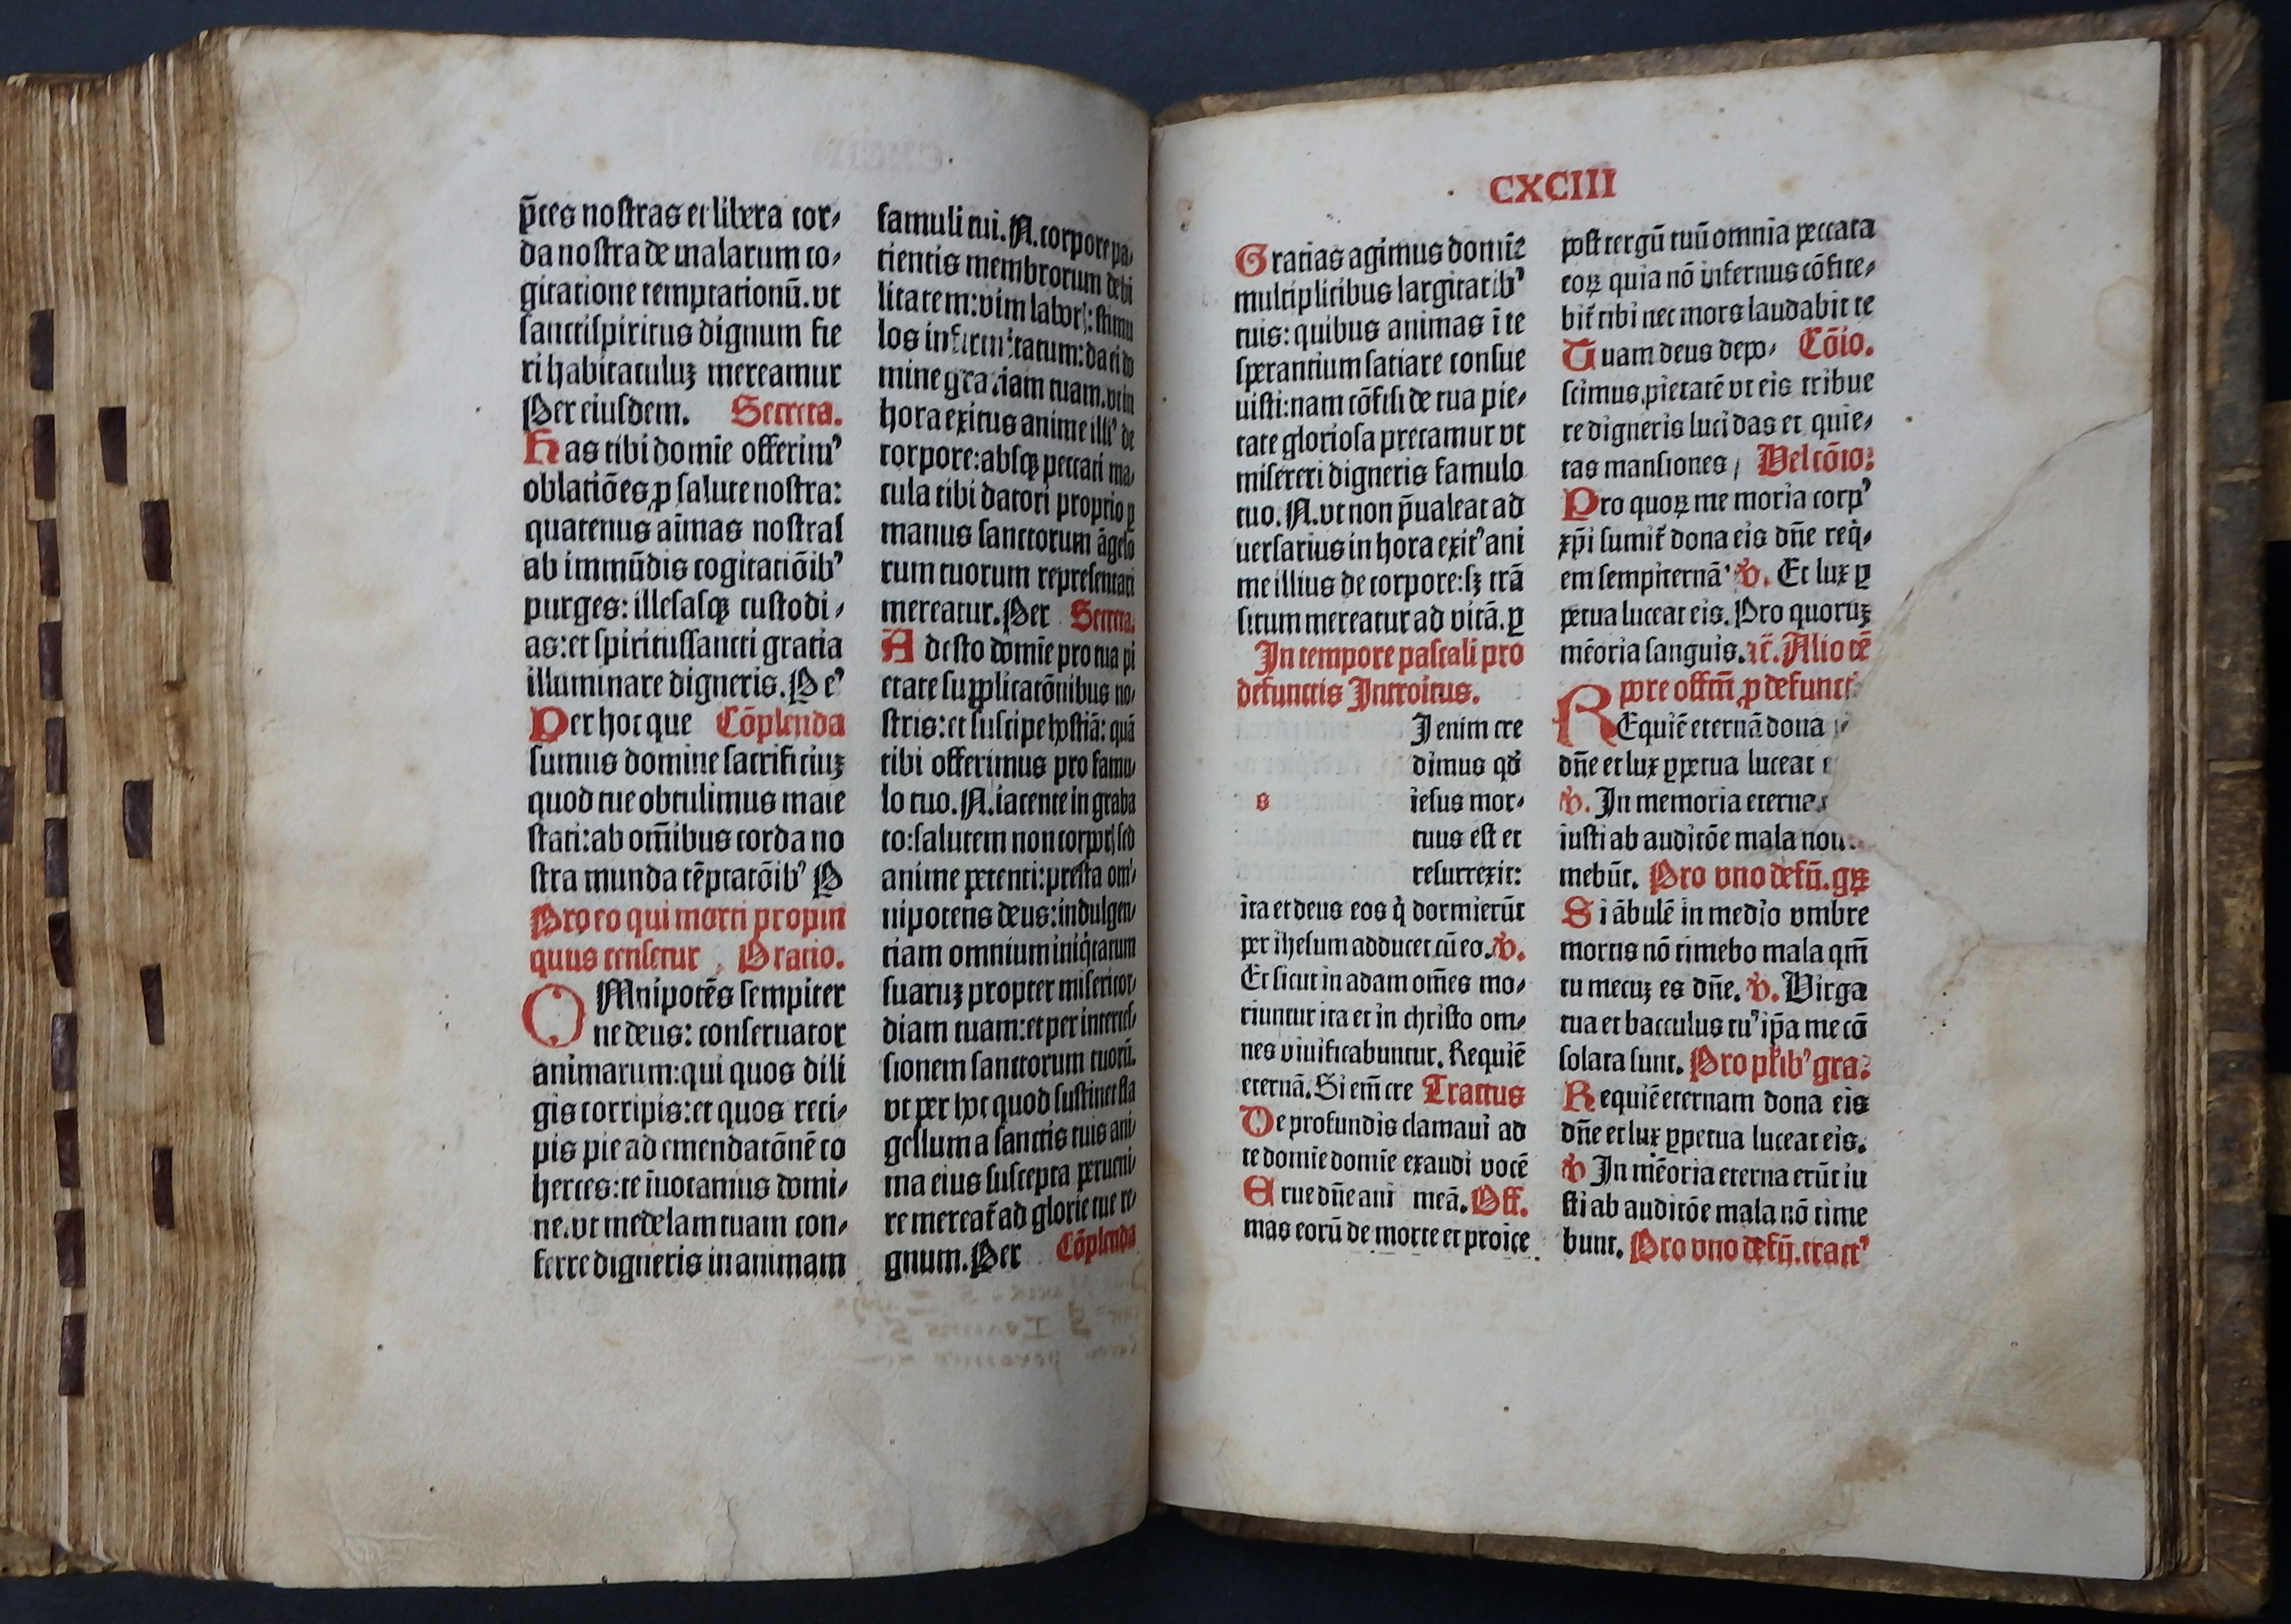 p̄ces nostras et libera cor⸗
da nostra de malarum co⸗
gitatione temptationū. vt
sanctispiritus dignum fie
ri habitaculuꝫ mereamur
Per eiusdem. Secreta.
Has tibi domīe offerimꝰ
oblatiōes ꝓ salute nostra:
quatenus aīmas nostras
ab immūdis cogitatiōibꝰ
purges: illesasqꝫ custodi⸗
as: et spiritussancti gratia
illuminare digneris. Peꝰ
Per hoc que Cōplenda
sumus domine sacrificiuꝫ
quod tue obtulimus maie
stati: ab om̄ibus corda no
stra munda tēptatōibꝰ P
Pro eo qui morti propin
quus censetur. Oratio.
OMnipotēs sempiter
ne deus: conseruator
animarum: qui quos dili
gis corripis: et quos reci⸗
pis pie ad emendatōnē co
herces: te īuocamus domi⸗
ne. vt medelam tuam con⸗
ferre digneris in animam
famuli tui. N. corpore pa⸗
tientis membrorum debi
litatem: vim laborꝭ: stimu
los infirmitatum: da ei do
mine gratiam tuam. vt in
hora exitus anime illiꝰ de
corpore: absqꝫ peccati ma⸗
cula tibi datori proprio ꝑ
manus sanctorum āgelo
rum tuorum representari
mereatur. Per Secreta.
Adesto domīe pro tua pi
etate supplicatōnibus no⸗
stris: et suscipe hostiā: quā
tibi offerimus pro famu⸗
lo tuo. N. iacente in graba
to: salutem non corporꝭ sed
anime petenti: presta om⸗
nipotens deus: indulgen⸗
tiam omnium iniq̇tatum
suaruꝫ propter misericor⸗
diam tuam: et per interces⸗
sionem sanctorum tuorū.
vt per hoc quod sustinet fla
gellum a sanctis tuis ani⸗
ma eius suscepta perueni⸗
re mereat̄ ad glorie tue re⸗
gnum. Per Cōplenda
CXCIII
Gratias agimus domīe
multiplicibus largitatibꝰ
tuis: quibus animas ī te
sperantium satiare consue
uisti: nam cōfisi de tua pie⸗
tate gloriosa precamur vt
misereri digneris famulo
tuo. N. vt non p̄ualeat ad
uersarius in hora exitꝰ ani
me illius de corpore: sꝫ trā
situm mereatur ad vitā. ꝑ
In tempore pascali pro
defunctis Introitus.
s
I enim cre
dimus qđ
iesus mor⸗
tuus est et
resurrexit:
ita et deus eos q̇ dormierūt
per ihesum adducet cū eo. ℣.
Et sicut in adam om̄es mo⸗
riuntur ita et in christo om⸗
nes viuificabuntur. Requiē
eternā. Si em̄ cre Tractus
De profundis clamaui ad
te domīe domīe exaudi vocē
Erue dn̄e ani meā. Off.
mas eorū de morte et proice
post tergū tuū omnia peccata
eoꝝ quia nō infernus cōfite⸗
bit̄ tibi nec mors laudabit te
Tuam deus depo⸗ Cōio.
scimus pietatē vt eis tribue
re digneris lucidas et quie⸗
tas mansiones / Vel cōio:
Pro quoꝝ memoria corpꝰ
xp̄i sumit̄ dona eis dn̄e req̇⸗
em sempiternā ℣. Et lux ꝑ
petua luceat eis. Pro quoruꝫ
mēoria sanguis. ⁊c̄. Alio tē
pore offm̄ ꝓ defunct
REquiē eternā dona
dn̄e et lux ꝑpetua luceat e
℣. In memoria eterna
iusti ab auditōe mala non
mebūt. Pro vno defū. gꝝ
Si ābulē in medio vmbre
mortis nō timebo mala qm̄
tu mecuꝫ es dn̄e. ℣. Virga
tua et bacculus tuꝰ ip̄a me cō
solata sunt. Pro pl̄ibꝰ gra:
Requiē eternam dona eis
dn̄e et lux ꝑpetua luceat eis.
℣ In mēoria eterna erūt iu
sti ab auditōe mala nō time
bunt. Pro vno defū. tractꝰ